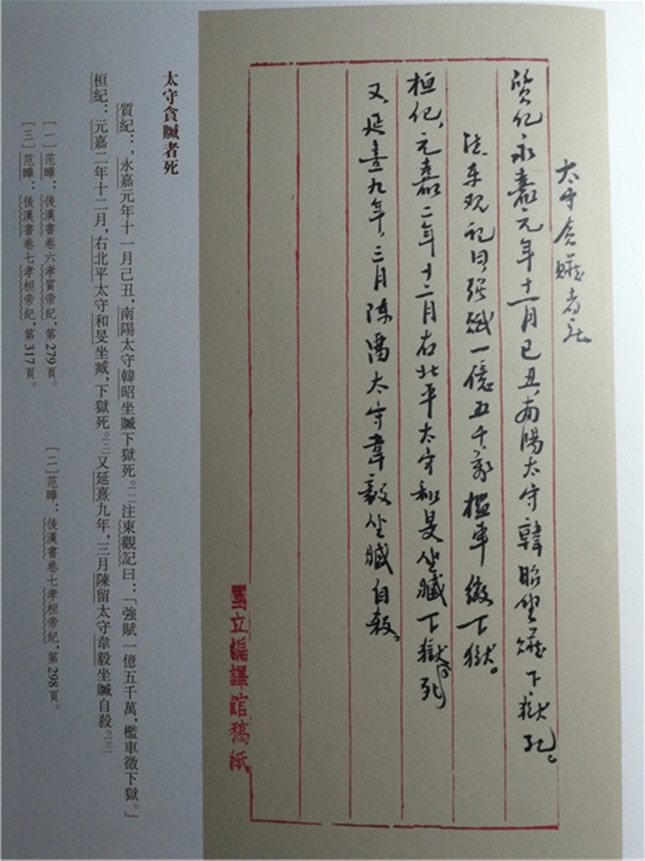 太守貪贓者死
質紀永嘉元年十一月己丑，南陽太守韓昭坐贓下獄死。
注東观記曰，强赋一億五千萬，檻車徵下獄。
桓紀，元嘉二年十二月右北平太守和旻坐臧下獄死
又延熹九年，三月陳留太守韋毅坐臧自殺。
國立編譯館稿紙
太守貪贓者死
質紀：，永嘉元年十一月己丑，南陽太守韓昭坐贓下獄死。〔一〕注東觀記曰：「強賦一億五千萬，檻車徵下獄。」
桓紀：元嘉二年十二月，右北平太守和旻坐臧，下獄死。〔二〕又延熹九年，三月陳留太守韋毅坐贓自殺。〔三〕
〔一〕范曄：後漢書卷六孝質帝紀，第279頁。
〔二〕范曄：後漢書卷七孝桓帝紀，第298頁。
〔三〕范曄：後漢書卷七孝桓帝紀，第317頁。